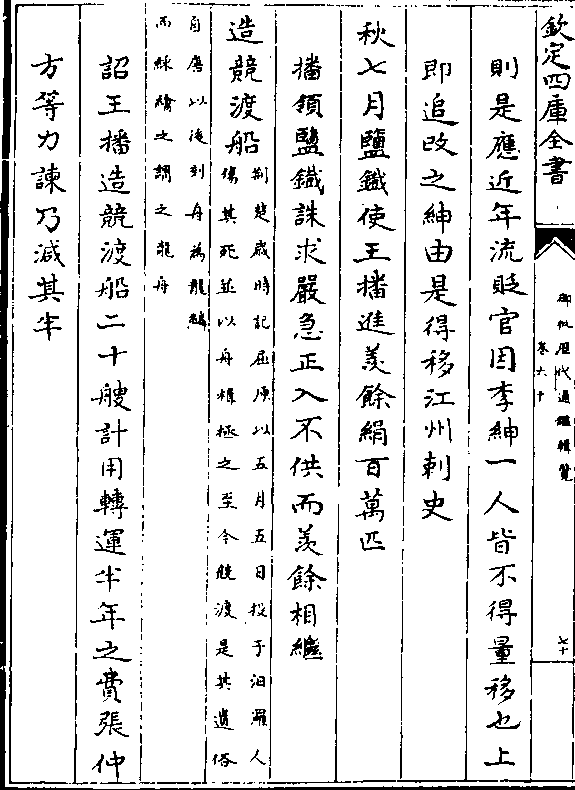 欽定四庫全書
御批歷代通鑑輯覽
卷六十
七十
則是應近年流貶官因李紳一人皆不得量移也上
即追改之紳由是得移江州刺史
秋七月鹽鐵使王播進羨餘絹百萬匹
播領鹽鐵誅求嚴急正入不供而羨餘相繼
造競渡船
荆楚歲時記屈原以五月五日投于汨羅人
傷其死並以舟楫拯之至今競渡是其遺俗
自唐以後刻舟為龍
而綵繪之謂之龍舟
詔王播造競渡船二十艘計用轉運半年之費張仲
方等力諫乃減其半